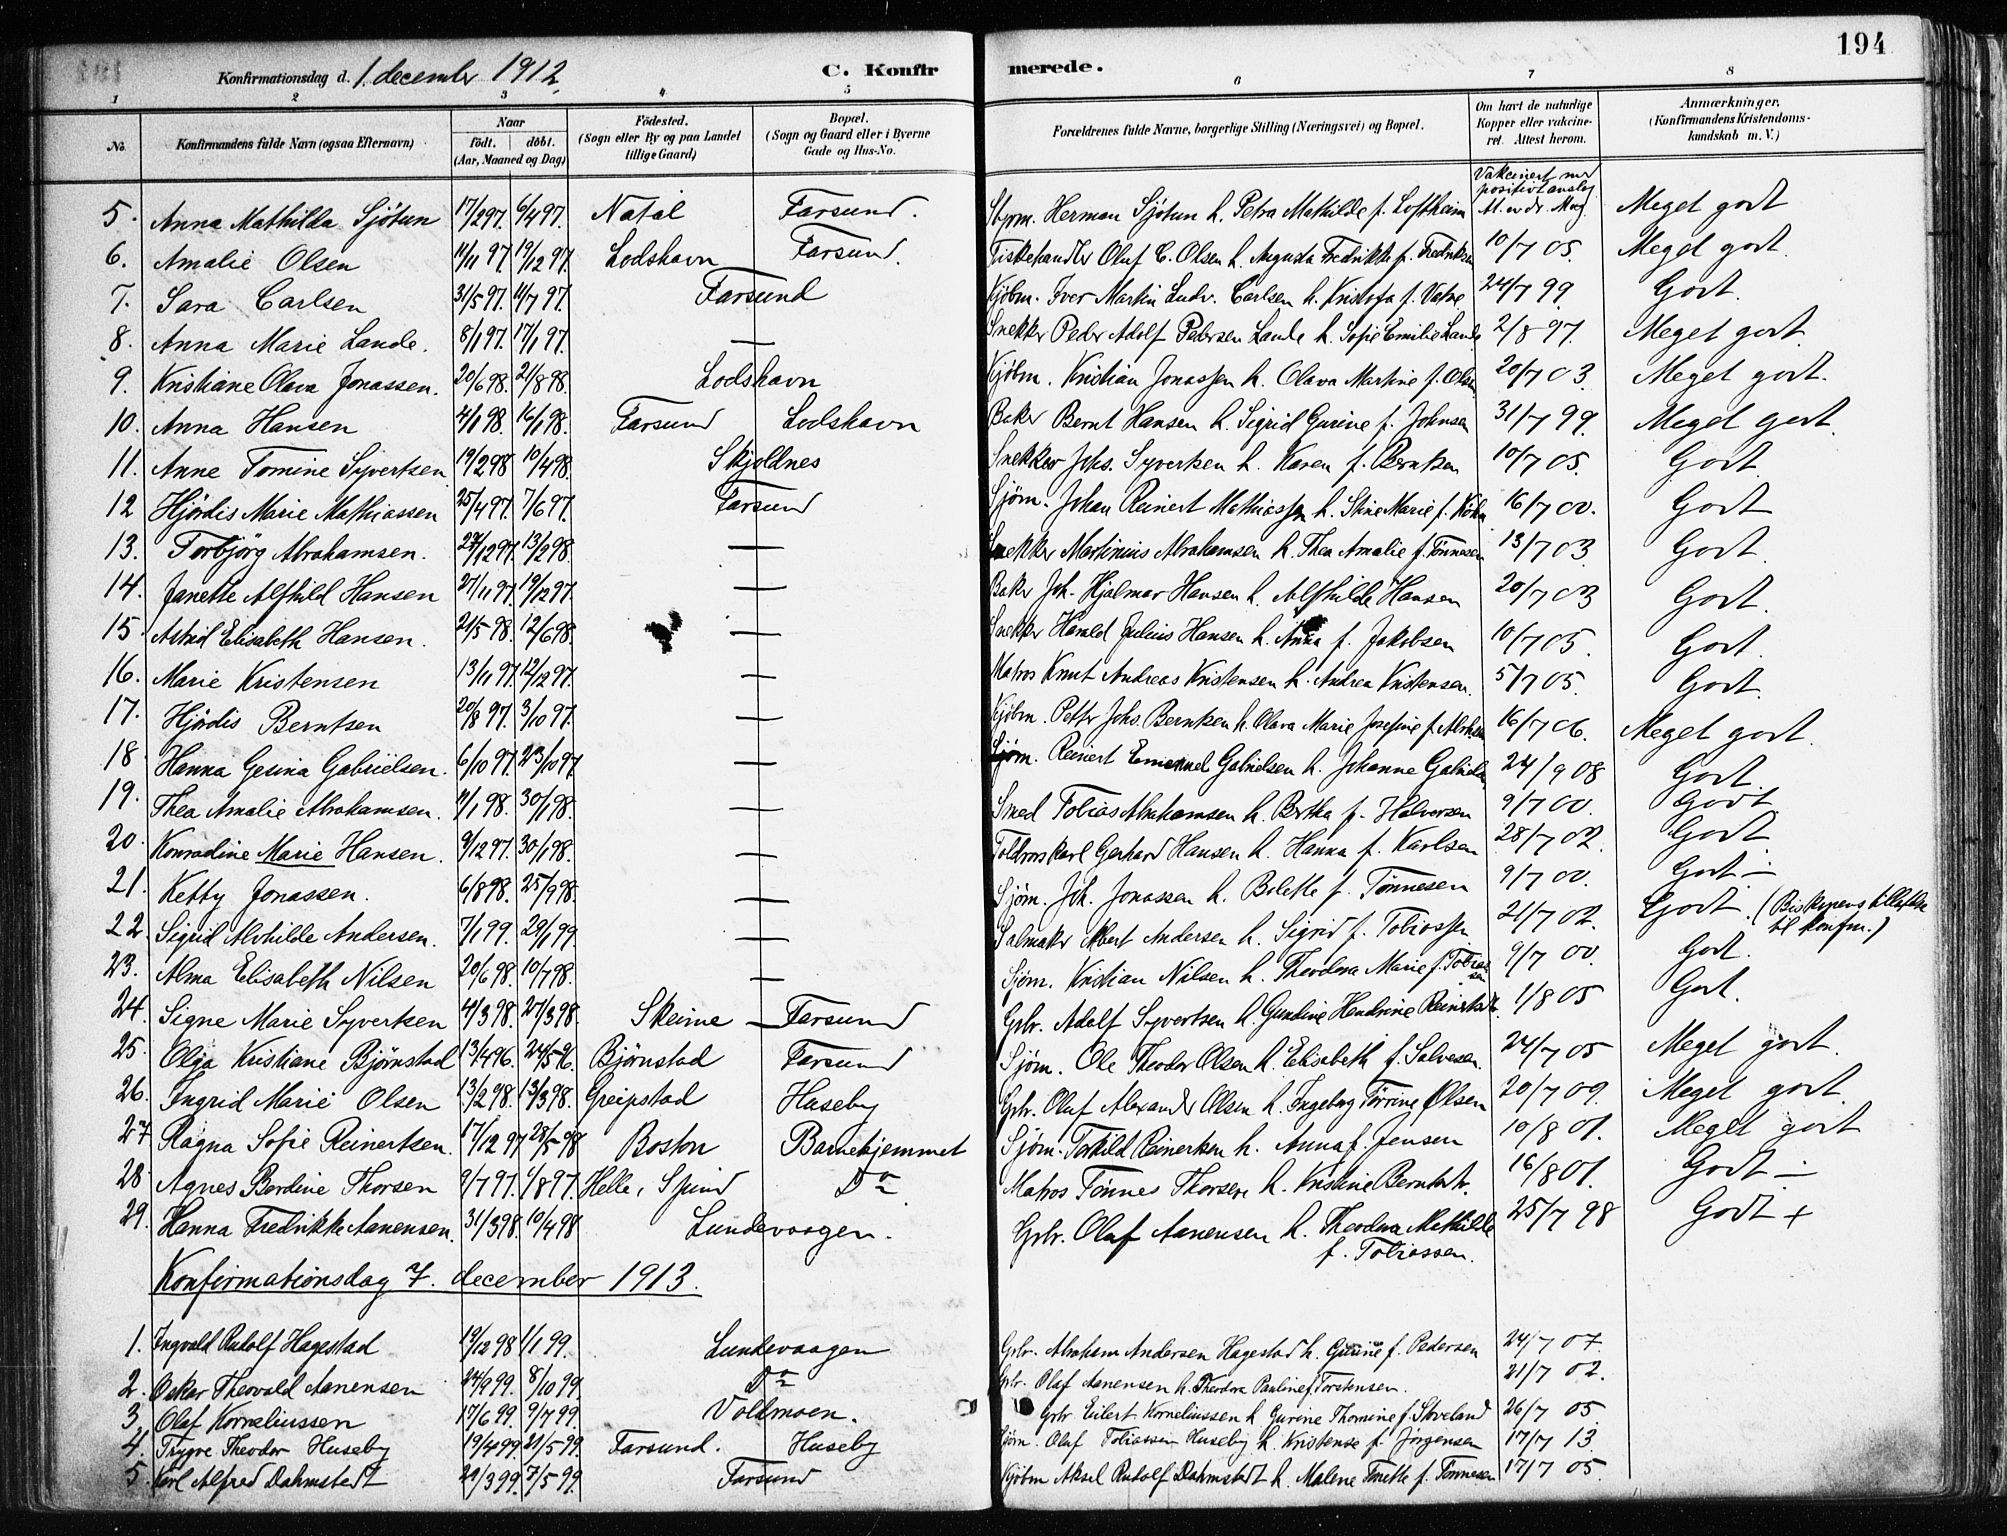 194
Konfirmationsdag d. 1. december 1912. C. Konfirmerede.
1 2 3 4 5 6 7 8
No. Konfirmandens fulde Navn (ogsaa Efternavn) Naar født. døbt. (Aar, Maaned og Dag) Fødested. (Sogn eller By og paa Landet tillige Gaard) Bopæl. (Sogn og Gaard eller i Byerne Gade og Hus-No. Forældrenes fulde Navne, borgerlige Stilling (Næringsvei) og Bopæl. Om havt de naturlige Kopper eller vakcineret. Attest herom. Anmærkninger. (Konfirmandens Kristendomskundskab m. V.)
Vakcinert med positivt anslag
5. Anna Mathilda Sjøtun 17/2 97. 6/4 97. Natal Farsund. Styrm. Herman Sjøtun h. Petra Mathilde f. Loftheim Meget godt
6. Amalie Olsen 11/11 97 19/12 97. Lodshavn Farsund. Fiskehandler Oluf C. Olsen h. Augusta Fredrikke f. Fredriksen 10/7 05. Meget godt.
7. Sara Carlsen 31/5 97. 11/7 97. Farsund Kjøbm. Iver Martin Ludv. Carlsen h. Kristofa f. Vatne 24/7 99. Godt.
8. Anna Marie Lande. 8/1 97. 17/1 97. — Snekker Peder Adolf Pedersen Lande h. Sofie Emilie Lande 2/8 97. Meget godt.
9. Kristiane Olava Jonassen. 20/6 98. 21/8 98. Lodshavn Kjøbm. Kristian Jonassen h. Olava Martine f. Olsen 20/7 03. Meget godt.
10. Anna Hansen 4/1 98. 16/1 98. Farsund Lodshavn Baker Bernt Hansen h. Sigrid Gurine f. Johnsen 31/7 99. Meget godt.
11. Anne Tomine Syvertsen 19/2 98 10/4 98. Skjoldnes Snekker Johs. Syvertsen h. Karen f. Berntsen 10/7 05. Godt
12 Hjørdis Marie Mathiassen 25/4 97. 7/6 97. Farsund Sjøm. Johan Reinert Mathiassen h. Stine Marie f. 16/7 00. Godt
13. Torbjørg Abrahamsen. 27/12 97. 13/2 98. — Snekker Martinius Abrahamsen h. Thea Amalie f. Tønnesen 13/7 03 Godt.
14. Janette Alfhild Hansen 27/11 97. 19/12 97. — Baker Joh. Hjalmar Hansen h. Alfhilde Hansen 20/7 03 Godt.
15. Astrid Elisabeth Hansen. 21/5 98. 12/6 98. — Snekker Harald Julius Hansen h. Anna f. Jakobsen 10/7 05. Godt.
16. Marie Kristensen 13/11 97. 12/12 97. — Matros Knut Andreas Kristensen h. Andrea Kristensen. 5/7 05. Godt.
17. Hjørdis Berntsen 20/8 97. 3/10 97. — Kjøbm. Petter Johs. Berntsen h. Olava Marie Josefine f. 16/7 06. Meget godt.
18. Hanna Gesina Gabrielsen. 6/10 97. 23/10 97. — Sjøm. Reinert Emanuel Gabrielsen h. Johanne Gabrielsen 24/9 08 Godt
19. Thea Amalie Abrahamsen. 11/1 98. 30/1 98. — Smed Tobias Abrahamsen h. Bertha f. Halvorsen 9/7 00. Godt
20. Konradine Marie Hansen. 9/12 97. 30/1 98. — Toldrorskarl Gerhard Hansen h. Hanna f. Karlsen 28/7 02. Godt
21. Ketty Jonassen. 6/8 98. 25/9 98. — Sjøm. Joh. Jonassen h. Bolette f. Tønnesen 9/7 00. Godt -
22. Sigrid Alvhilde Andersen. 7/1 99. 29/1 99. — Salmaker Albert Andersen h. Sigrid f. Tobiassen 21/7 02. Godt. (Biskopens tilladelse til konfm.)
23. Alma Elisabeth Nilsen 20/6 98. 10/7 98. — Sjøm. Kristian Nilsen h. Theodora Marie f. Tobiassen 9/7 00. Godt.
24. Signe Marie Syvertsen 4/3 98. 27/3 98. Skeime — Farsund Gbr. Adolf Syvertsen h. Gundine Hendrine 1/8 05 Godt.
25. Olga Kristiane Bjørnstad 13/4 96. 24/5 96. Bjørnstad Farsund Sjøm. Ole Theodor Olsen h. Elisabeth f. Salvesen. 24/7 05 Meget godt.
26. Ingrid Marie Olsen 13/2 98. 13/3 98. Greipstad Huseby Gbr. Oluf Alexander Olsen h. Ingeborg Tørrine Olsen 20/7 09. Meget godt.
27 Ragna Sofie Reinertsen. 17/12 97 28/5 98 Boston Barnehjemmet Sjøm. Torkild Reinertsen h. Anna f. Jensen 10/8 01. Meget godt
28 Agnes Berdine Thorsen 9/7 97. 1/8 97. Helle, Spind Do Matros Tønnes Thorsen h. Kristine Berntsdtr. 16/8 01. Godt -
29. Hanna Fredrikke Aanensen. 31/3 98. 10/4 98 Lundevaagen. Gbr. Olaf Aanensen h. Theodora Mathilde f. Tobiassen. 25/7 98 Godt +
Konfirmationsdag 7. december 1913.
1. Ingvald Rudolf Hagestad 19/12 98 1/1 99. Lundevaagen Gbr. Abraham Andersen Hagestad h. Gurine f. Pedersen 24/7 07.
2. Oskar Theovald Aanensen 24/9 99. 8/10 99. Do Gbr. Olaf Aanensen h. Theodora Pauline f. Torstensen. 21/7 02.
3. Olaf Korneliussen 17/6 99. 9/7 99. Voldmoen. Gbr Eilert Korneliussen h Gurine Thomine f. Stoveland 26/7 05.
4. Trygve Theodor Huseby 19/4 99. 21/5 99. Farsund. Huseby Sjøm. Oluf Tobiassen Huseby h. Kristense f. Jørgensen 17/7 13.
5. Karl Alfred Dahmstedt 29/3 99. 7/5 99. Farsund Kjøbm Aksel Rudolf Dahmstedt h. Malene Tonette f. Tønnesen 17/7 05.